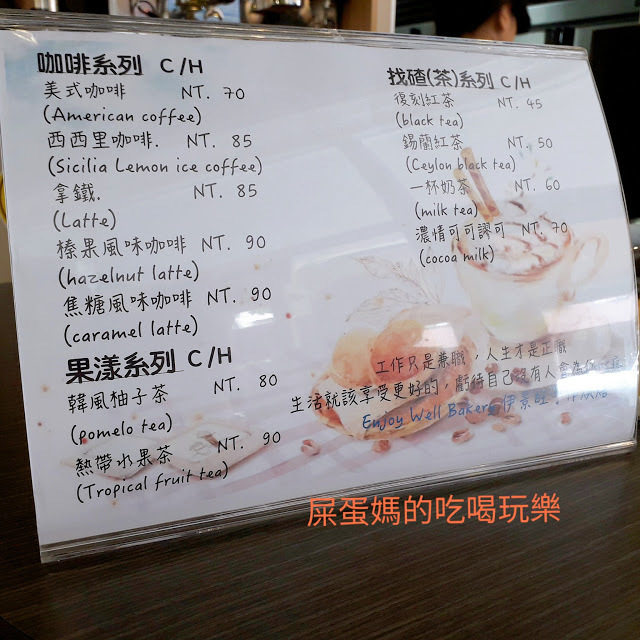 咖啡系列 C/H
美式咖啡 NT. 70
(American coffee)
西西里咖啡. NT. 85
(Sicilia Lemon ice coffee)
拿鐵. NT. 85
(Latte)
榛果風味咖啡 NT. 90
(hazelnut latte)
焦糖風味咖啡 NT. 90
(caramel latte)
果漾系列 C/H
韓風柚子茶 NT. 80
(pomelo tea)
熱帶水果茶 NT. 90
(Tropical fruit tea)
找碴(茶)系列 C/H
復刻紅茶 NT. 45
(black tea)
錫蘭紅茶 NT. 50
(Ceylon black tea)
一杯奶茶 NT. 60
(milk tea)
濃情可可謬可 NT. 70
(cocoa milk)
工作只是兼職，人生才是正職
生活就該享受更好的，虧待自己沒有人會為你
Enjoy Well Bakery 伊
屎蛋媽的吃喝玩樂